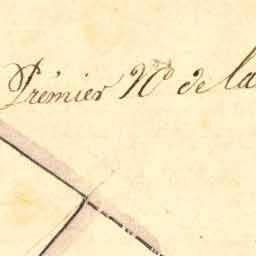 Prémier N.º de la